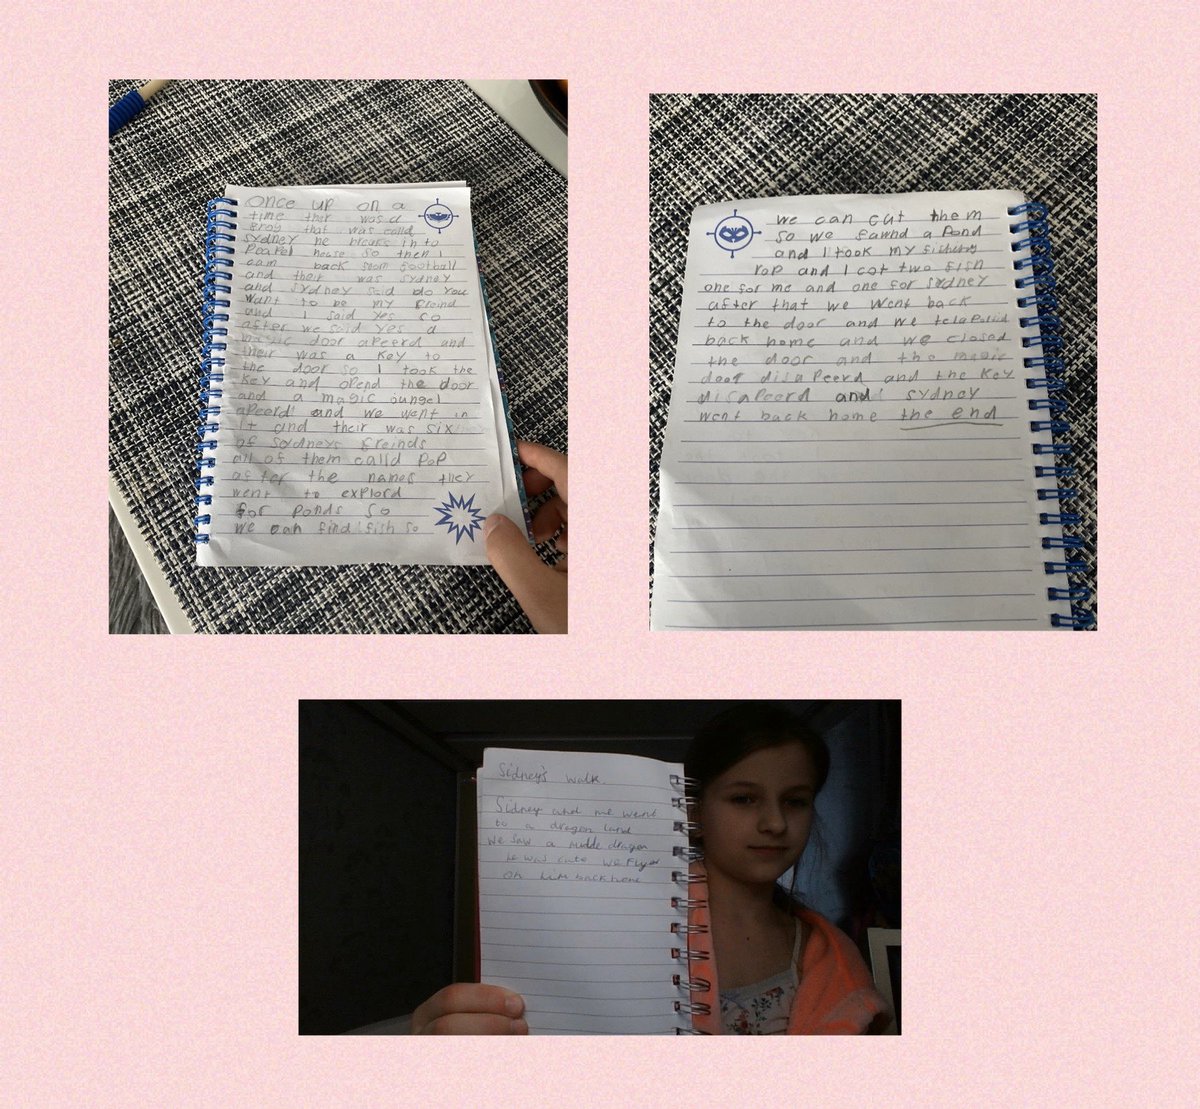 Once up on a
time ther was a
frog that was calld
sydney he breaks in to
Poapel house so then I
cam back from football
and their was sydney
and sydney said do you
want to be my freind
and I said yes so
after we said yes a
magic door apeerd and
their was a key to
the door so I took the
key and opend the door
and a magic gungel
apeerd and we went in
it and their was six
of Sydneys freinds
all of them calld PoP
as for the names they
went to explord
for Ponds so
we can find fish so
we can cut them
so we fawnd a Pond
and I took my fishing
rop and I cot two fish
one for me and one for sydney
after that we went back
to the door and we telaPortid
back home and we closed
the door and the magic
door disaPeerd and the key
disaPeerd and sydney
went back home the end
Sidney's walk
Sidney and me went
to a dragon land
we saw a dragon
he was cute we flyed
on him back home